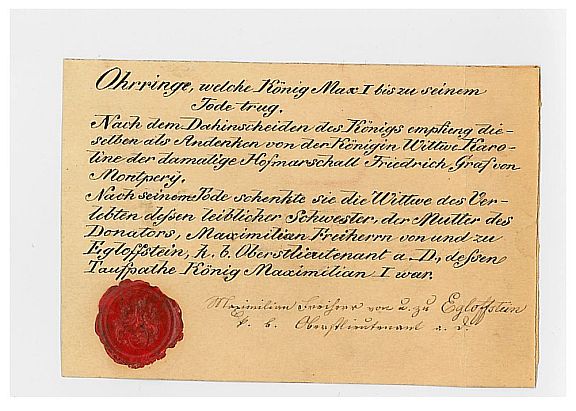 Ohrringe, welche König Max I bis zu seinem
Tode trug.
Nach dem Dahinscheiden des Königs empfieng die-
selben als Andenken von der Königin Wittwe Karo-
line der damalige Hofmarschall Friedrich, Graf von
Montperÿ.
Nach seinem Tode schenkte sie die Wittwe des Ver-
lebten deßen leiblicher Schwester, der Mutter des
Donators, Maximilian Freiherrn von und zu
Egloffstein, k. b. Oberstlieutenant a. D., deßen
Taufpathe König Maximilian I war.
Maximilian Freiherr von u. zu Egloffstein
k. b. Oberstlieutenant a. d.